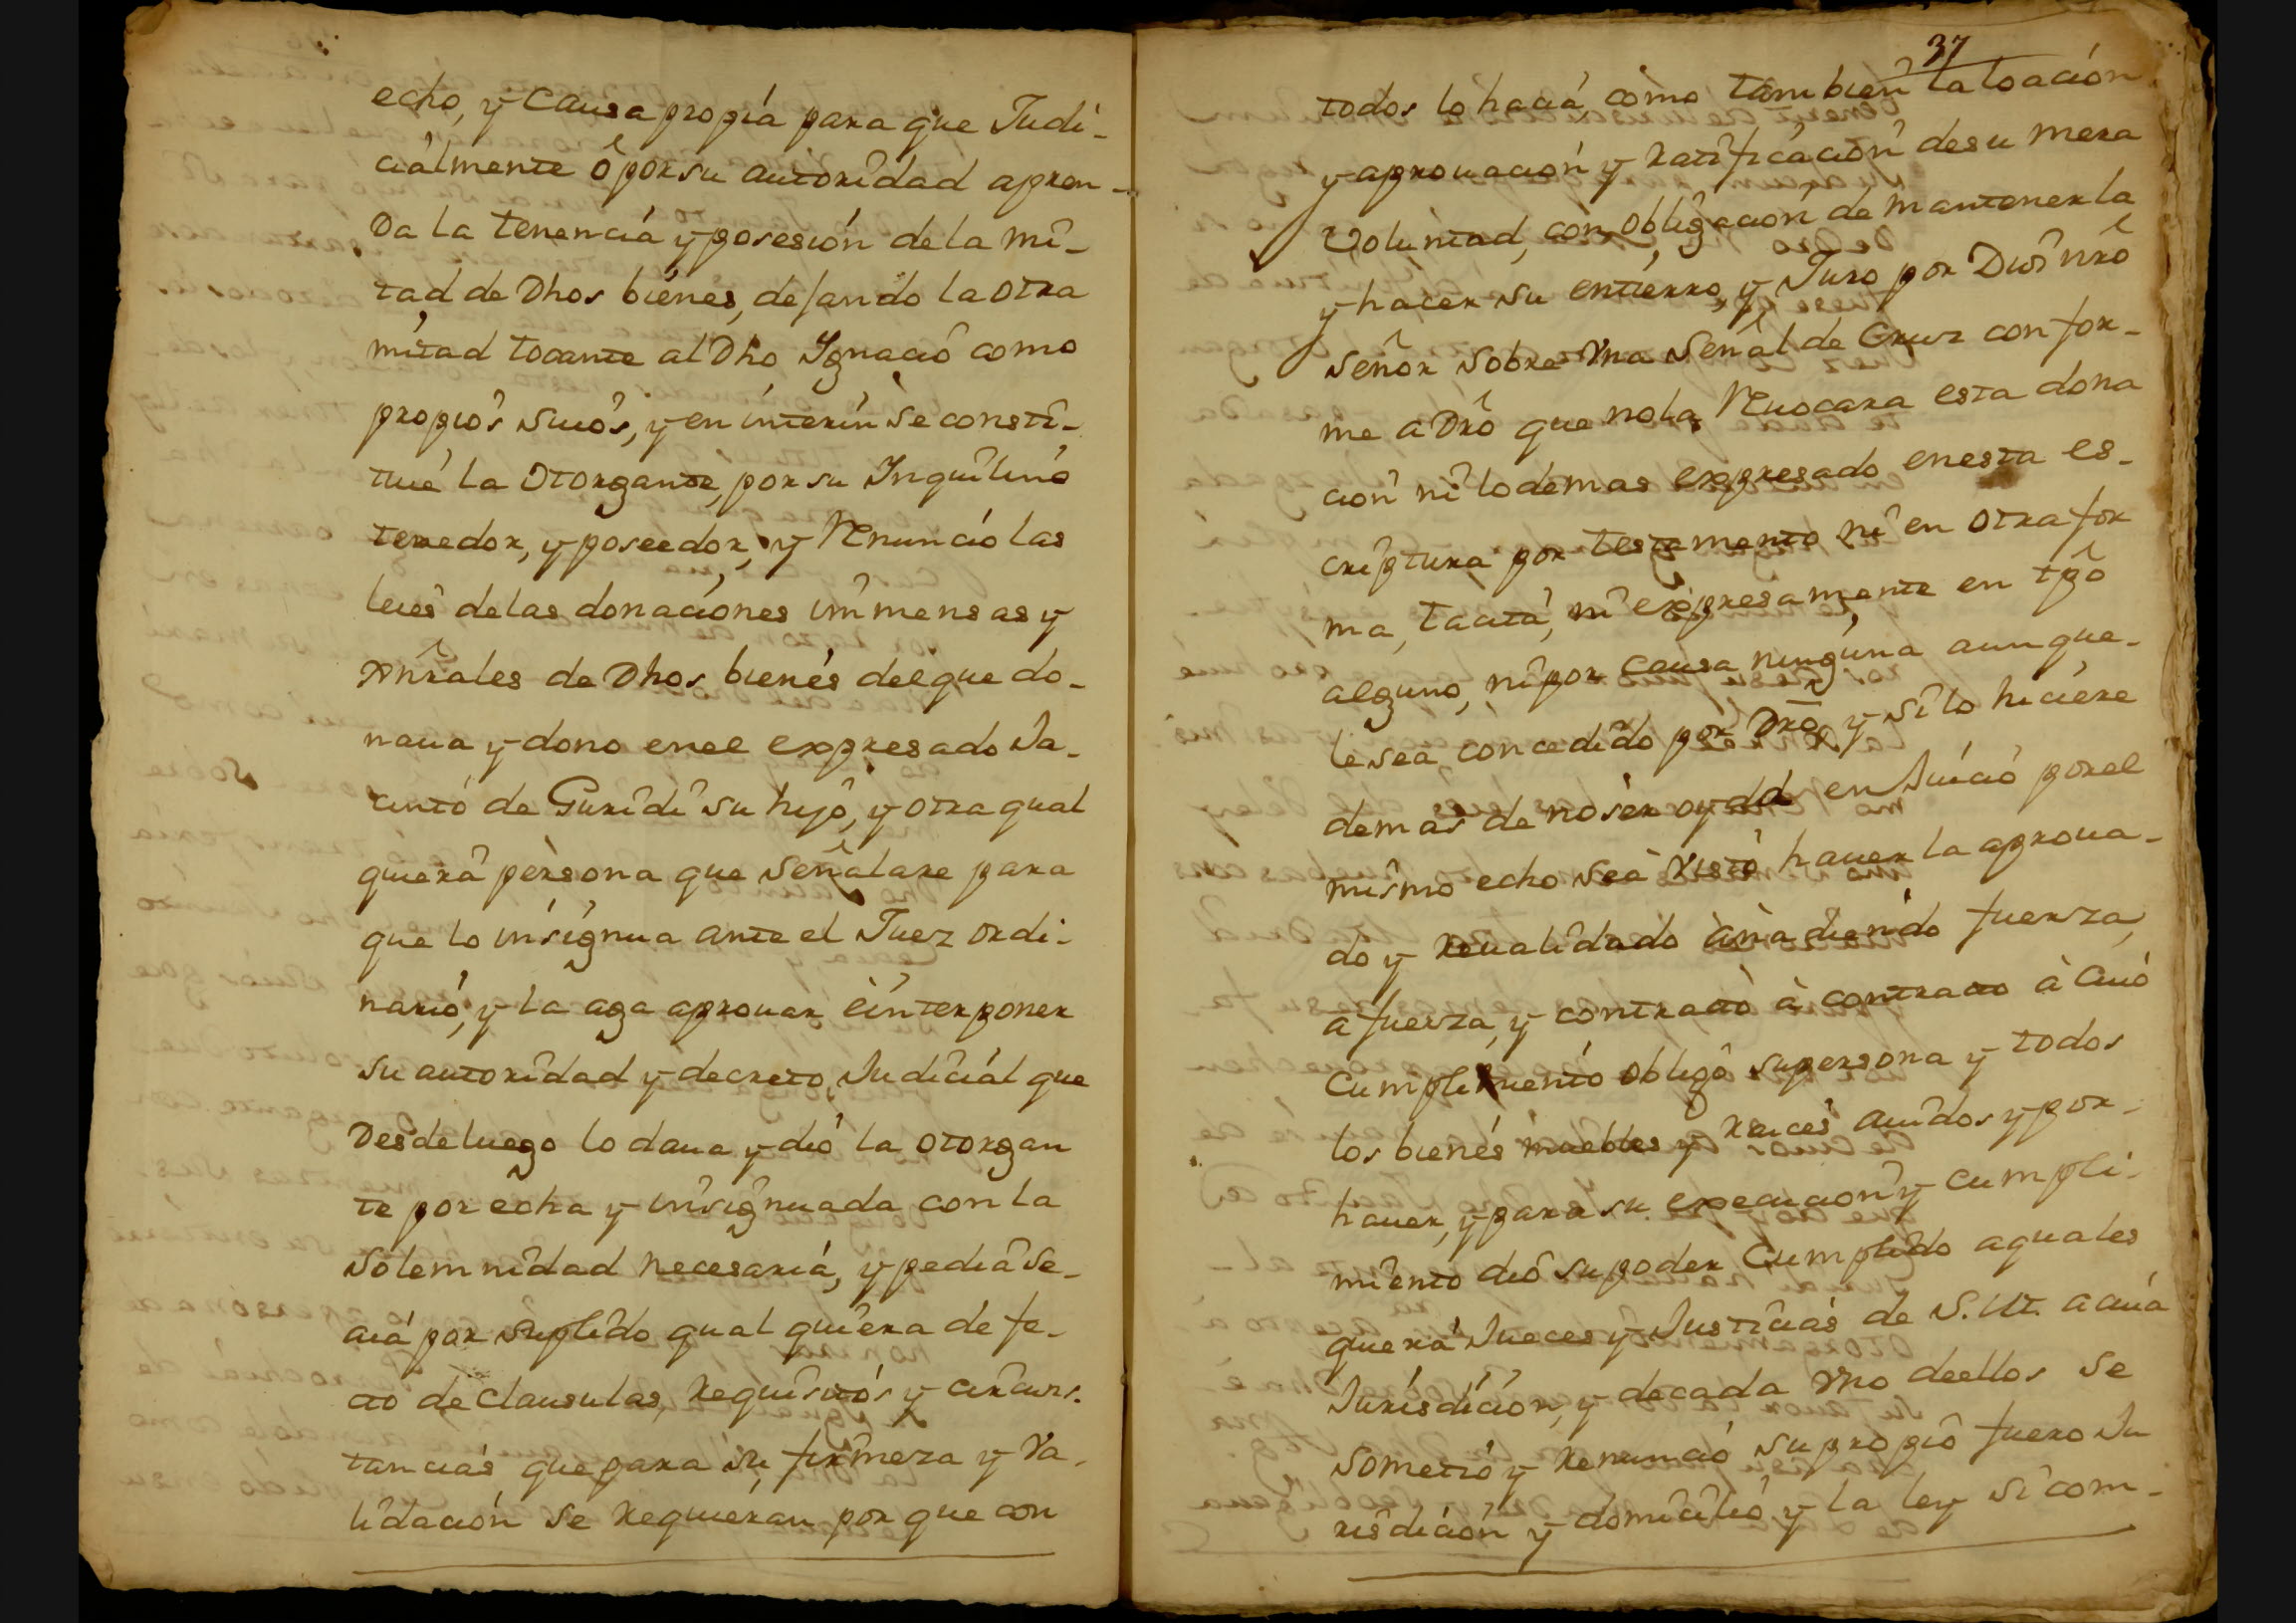 echo, y Causa propia para que Judi-
cialmente ô por su autoridad apren-
Da la tenencia y posesión de la mi-
tad de Dhos bienes, dejando la otra
mitad tocante al Dho Ygnacio como
propios suios, y en interin se consti-
tuie la Otorgante, por su Inquilino
tenedor, y poseedor, y Renunciò las
leies de las donaciones immensas y
Gnrales de Dhos bienes del que do-
naua y dono en el expresado Ja-
cinto de Guridi su hijo, y otra qual
quiera persona que señalare para
que lo insignua ante el Juez ordi-
nario, y la aga aprouar è interponer
su autoridad y decreto Judicial que
Desde luego lo daua y diò la otorgan
te por echa y insignuada con la
solemnidad necesaria, y pedia se-
aiá por suplido qual quiera defe-
cto de Clausulas, Requisitos y circuns-
tancias que para su firmeza y Va-
lidación se Requieran por que con
37
todos lo hacia como tambien la loación
y aprouación y Ratificación de su mera
Voluntad, con obligación de mantenerla
y hacer su entierro, y Juro por Dios nrô
Señor sobre Vna Señal de Cruz confor-
me a Drô que no la Reuocara esta dona
ciòn ni lo demas expresado en esta es-
criptura por testamento ni en otra for
ma, tacita, ni expresamente en tpô
alguno, ni por causa ninguna aunque-
le sea concedido por Drô, y si lo hiciere
demas de no ser oydâ en Juicio por el
mismo echo sea Visto hauer la aproua-
do y Reualidado àñadiendo fuerza
a fuerza, y contracto à contracto à Cuio
Cumplimiento obligò su persona y todos
los bienés muebles y Raices auidos y por-
hauer, y para su execuciòn y cumpli-
miento diò su poder Cumplido a quales
quiera Jueces y Justicias de S. M. a cuia
Jurisdición, y de cada Vno de ellos se
sometiò y Renunciò su propio fuero Ju
risdición y domicilio y la ley si com-